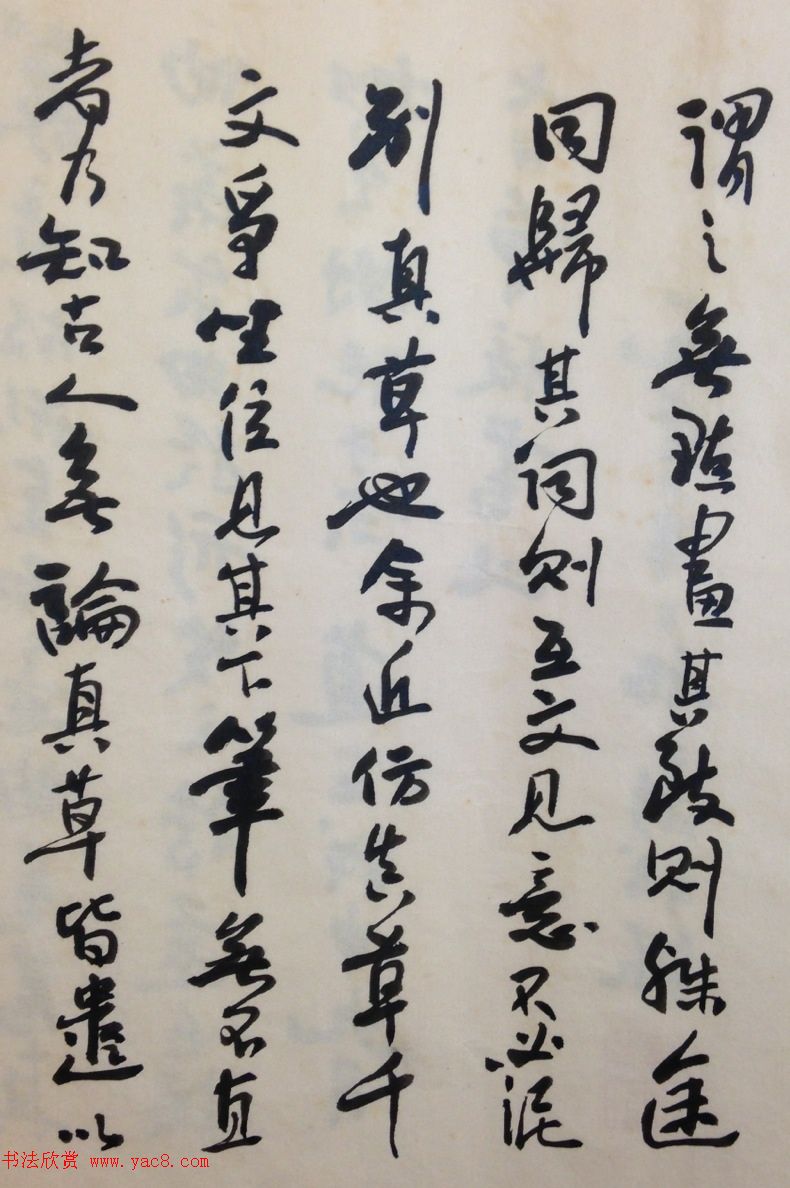 謂之無點畫其致則殊途
同歸其詞則互文見意不必泥
别真草也余近仿真草千
文爭坐位見其下筆無不直
者乃知古人無論真草皆遣以
书法欣赏 www.yac8.com